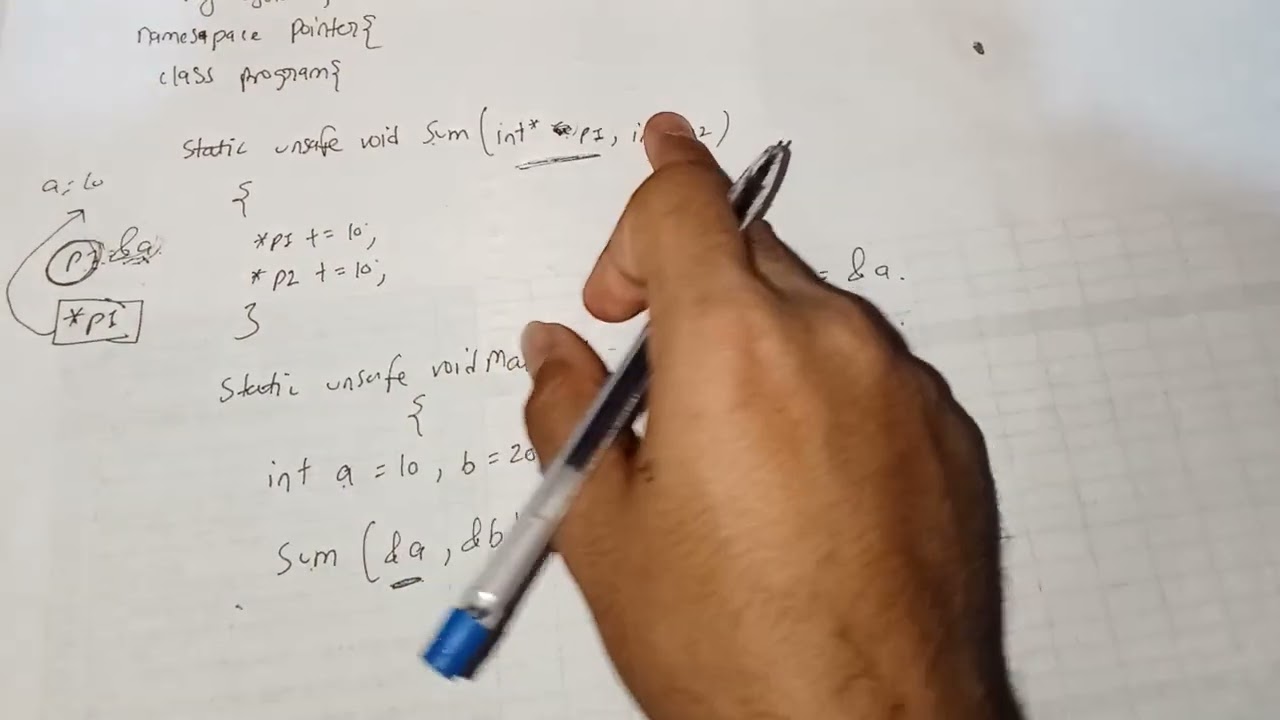 namespace pointer{
class program{
static unsafe void sum (int* p1,
a: 10
{
p1: &a
*p1 += 10;
= &a.
*p2 += 10;
*p1
}
static unsafe void
{
int a = 10, b = 20
sum (&a, &b